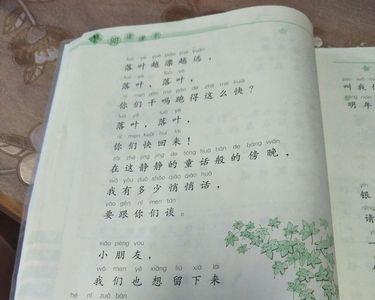 阅读课长
luò yè yuè piāo yuè yuǎn
落叶越漂越远，
luò yè luò yè
落叶，落叶，
nǐ men gàn má pǎo de zhè me kuài
你们干吗跑得这么快？
luò yè luò yè
落叶，落叶，
nǐ men kuài huí lái
你们快回来！
zài zhè jìng jìng de tóng huà bān de bàng wǎn
在这静静的童话般的傍晚，
wǒ yǒu duō shǎo qiāo qiāo huà
我有多少悄悄话，
yào gēn nǐ men tán
要跟你们谈。
xiǎo péng you
小朋友，
wǒ men yě xiǎng liú xià lái
我们也想留下来
hé nǐ zuò bàn
叫我
明年
yín
银
qǐng
请